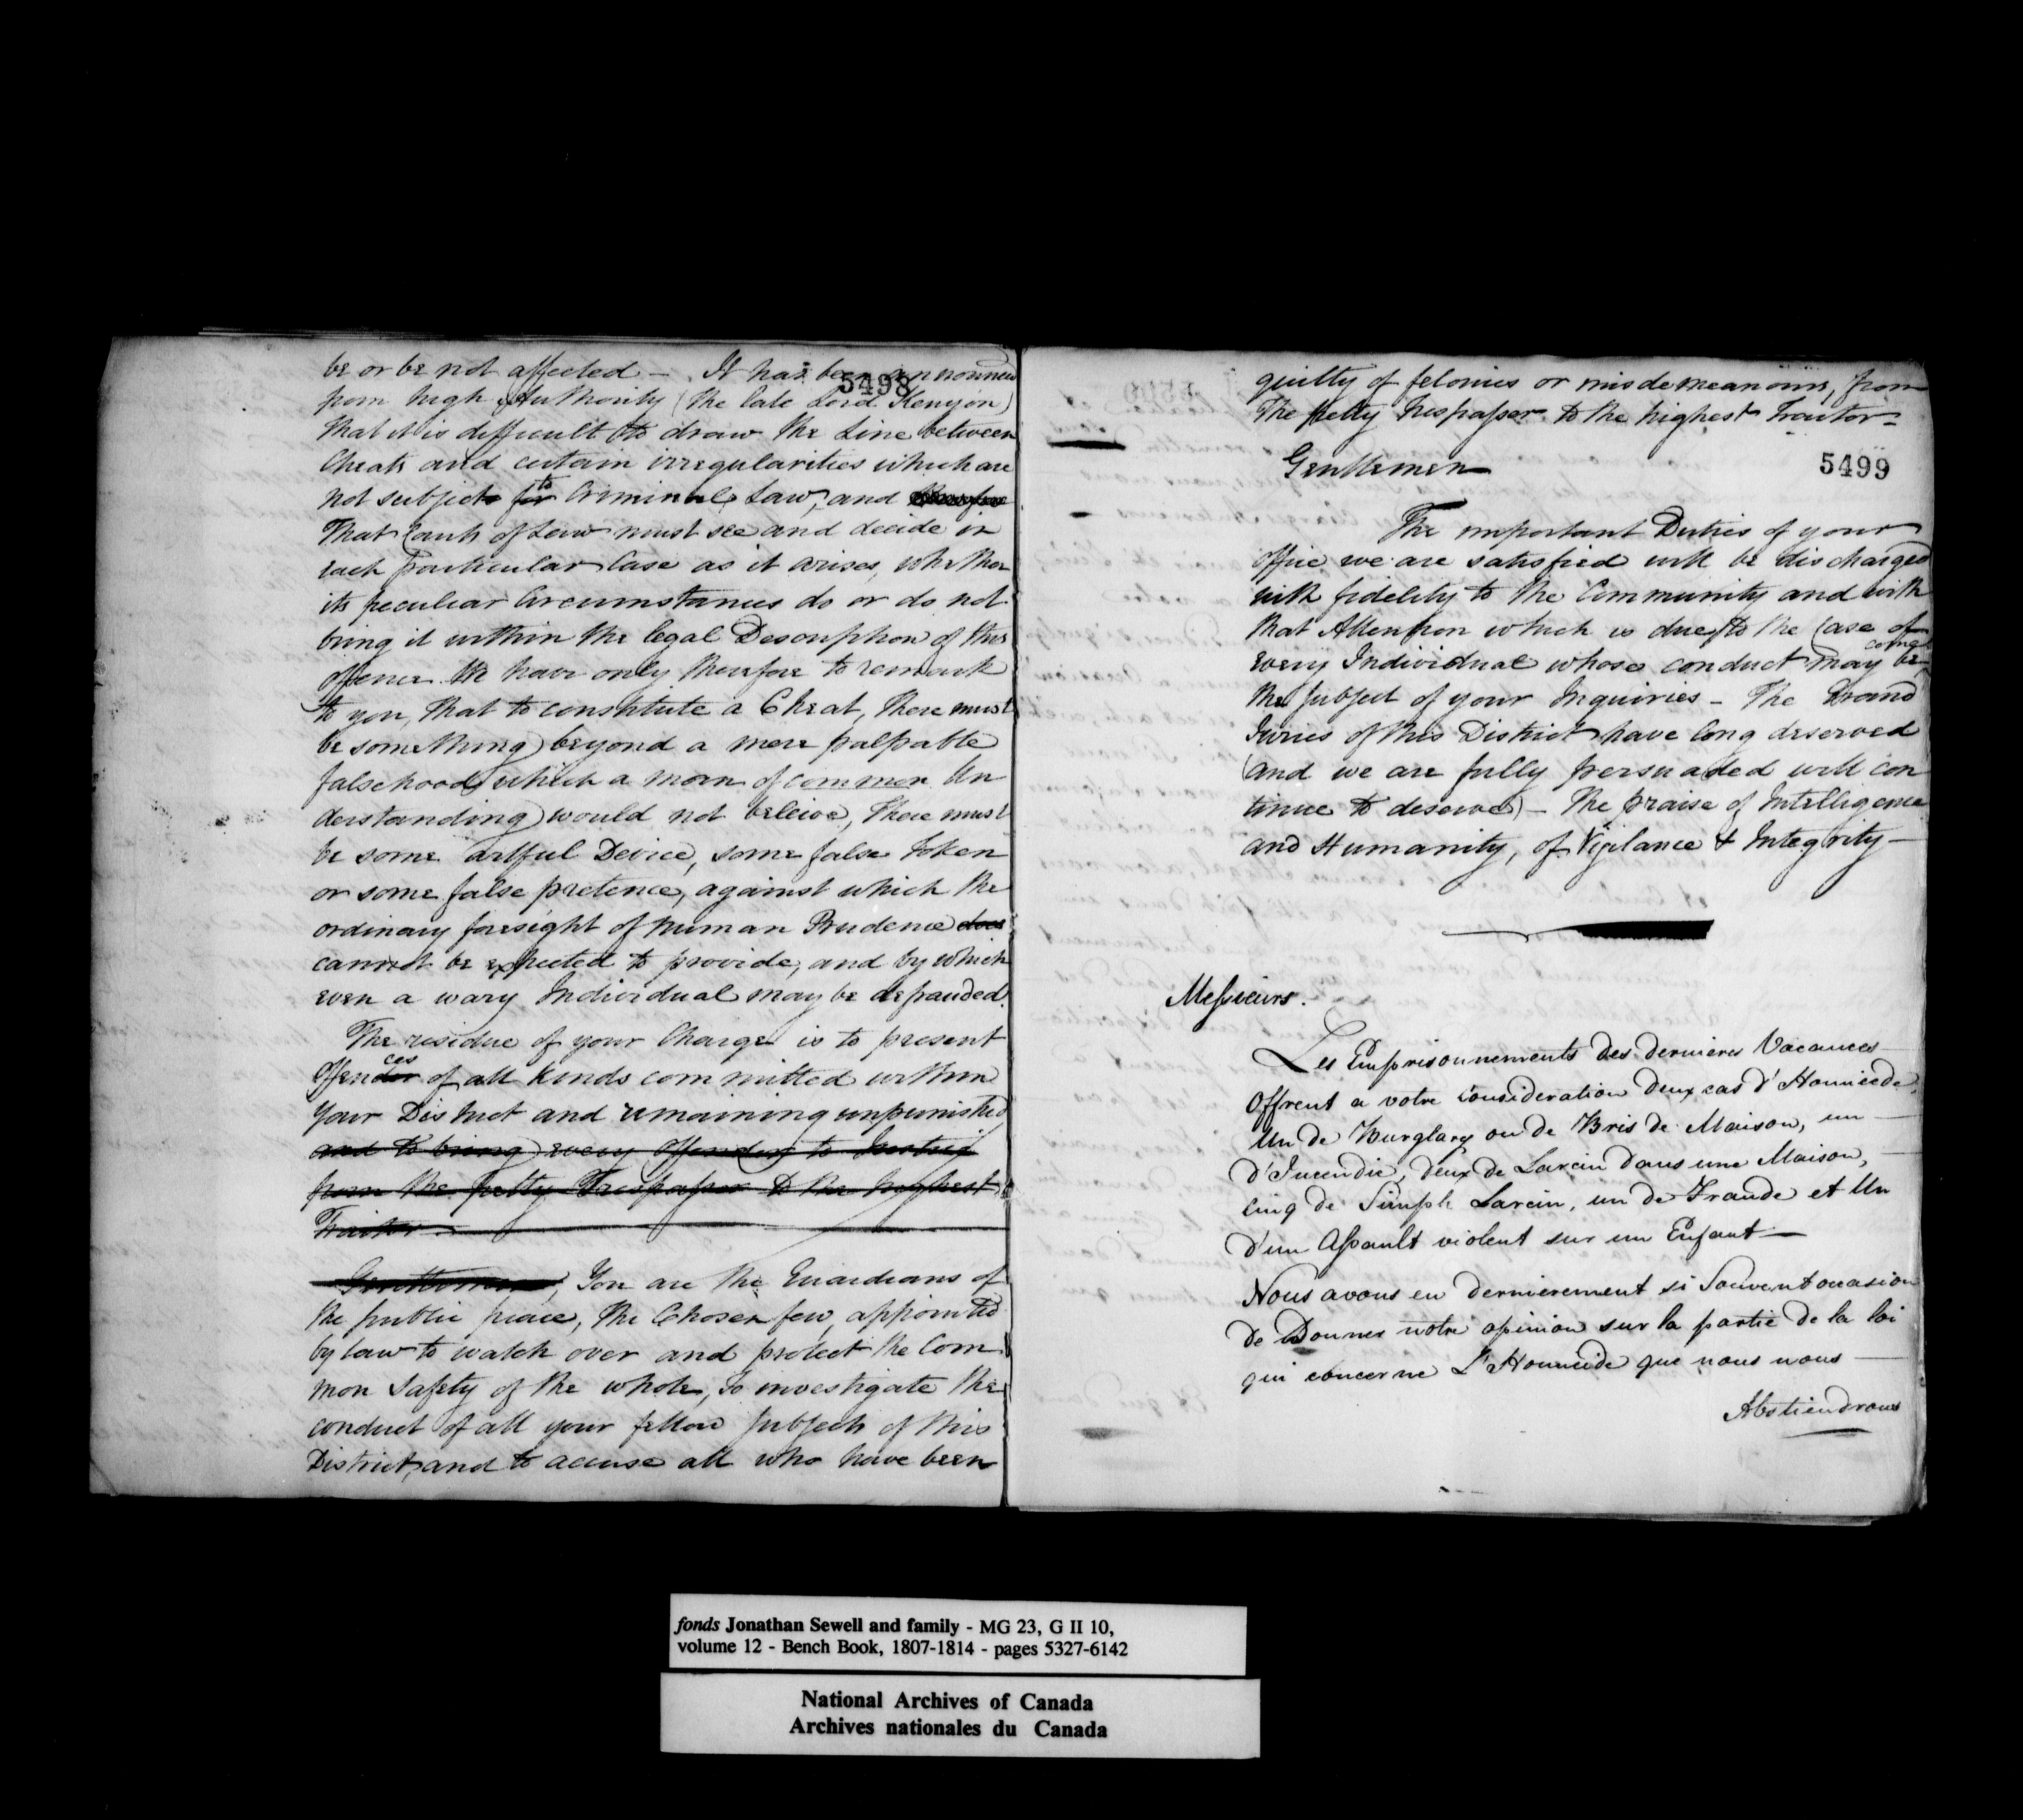 be or be not affected – It has been announced
5498
from high Authority (the late Lord Kenyon)
that it is difficult to draw the Line between
Cheats and certain irregularities which are
not subject for to Criminal Law, and therefore
That Courts of Law must see and decide in
each particular Case as it arises, whether
its peculiar Circumstances do or do not
bring it within the legal Description of this
offence. We have only therefore to remark
to you, that to constitute a Cheat, there must
be something beyond a mere palpable
falsehood which a man of common Un
derstanding would not beleive, There must
be some artful Device, some false Token
or some false pretence, against which the
ordinary foresight of human Prudence does
cannot be expected to provide, and by which
even a wary Individual may be defrauded.
The residue of your Charge is to present
Offender ces of all kinds committed within
your District and remaining unpunished
and to bring every Offender to Justice
from the petty Trespasser to the highest
Traitor –
Gentlemen, You are the Guardians of
the public peace, the Chosen few, appointed
by Law to watch over and protect the Com
mon Safety of the whole, to investigate the
conduct of all your fellow Subjects of this
District, and to accuse all who have been
guilty of felonies or misdemeanours, from
The petty trespasser to the highest Traitor –
Gentlemen
5499
The important Duties of your
office we are satisfied will be discharged
with fidelity to the Community and with
that Attention which is due to the Case of
every Individual whose conduct may be come
the subject of your Inquiries – The Grand
Juries of this District have long deserved
(and we are fully persuaded will con
tinue to deserve) – the praise of Intelligence
and Humanity, of Vigilance & Integrity –
Messieurs.
Les Emprisonnements des dernieres Vacances
Offrent a votre Consideration deux cas d'Homicide,
Un de Burglary ou de Bris de Maison, un
d'Incendie, deux de Larcin dans une Maison,
cinq de Simple Larcin, un de Fraude et Un
d'un Assault violent sur un Enfant –
Nous avons eu dernierement si Souvent occasion
de Donner notre opinion sur la partie de la loi
qui concerne L'Homicide que nous nous
Abstiendrons
fonds Jonathan Sewell and family - MG 23, G II 10,
volume 12 - Bench Book, 1807-1814 - pages 5327-6142
National Archives of Canada
Archives nationales du Canada